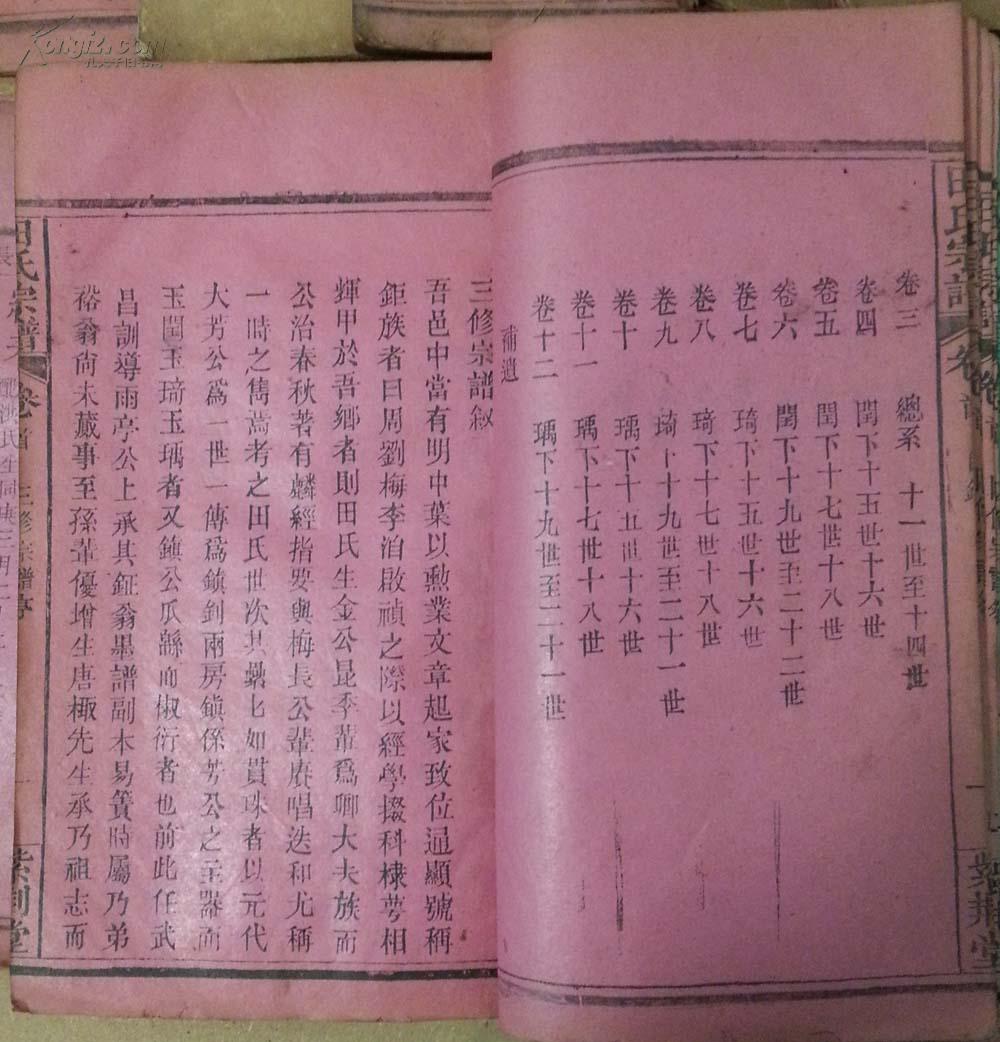 田氏宗譜
卷三 總系 十一世至十四世
卷四 閏下十五世十六世
卷五 閏下十七世十八世
卷六 閏下十九世至二十二世
卷七 琦下十五世十六世
卷八 琦下十七世十八世
卷九 琦下十九世至二十一世
卷十 瑀下十五世十六世
卷十一 瑀下十七世十八世
卷十二 瑀下十九世至二十一世
補遺
紫荊堂
三修宗譜敘
吾邑中當有明中葉以勳業文章起家致位通顯號稱
鉅族者曰周劉梅李洎啟禎之際以經學掇科棣萼相
輝甲於吾鄉者則田氏生金公昆季輩爲卿大夫族而
公治春秋著有麟經指要與梅長公輩賡唱迭和尤稱
一時之雋焉考之田氏世次其纍七如貫珠者以元代
大芳公爲一世一傳爲鎮釗兩房鎮係芳公之主器而
玉閏玉琦玉瑀者又鎮公瓜緜而椒衍者也前此任武
昌訓導雨亭公上承其鉦翁墨譜副本易簀時屬乃弟
裕翁尙未蕆事至孫輩優增生唐棷先生承乃祖志而
田氏宗譜 卷首 三修宗譜序 一 紫荊堂
Kongfz.com
孔夫子旧书网